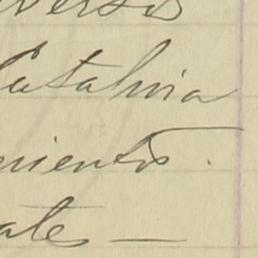 versos
Catalina
mientos.
ate —